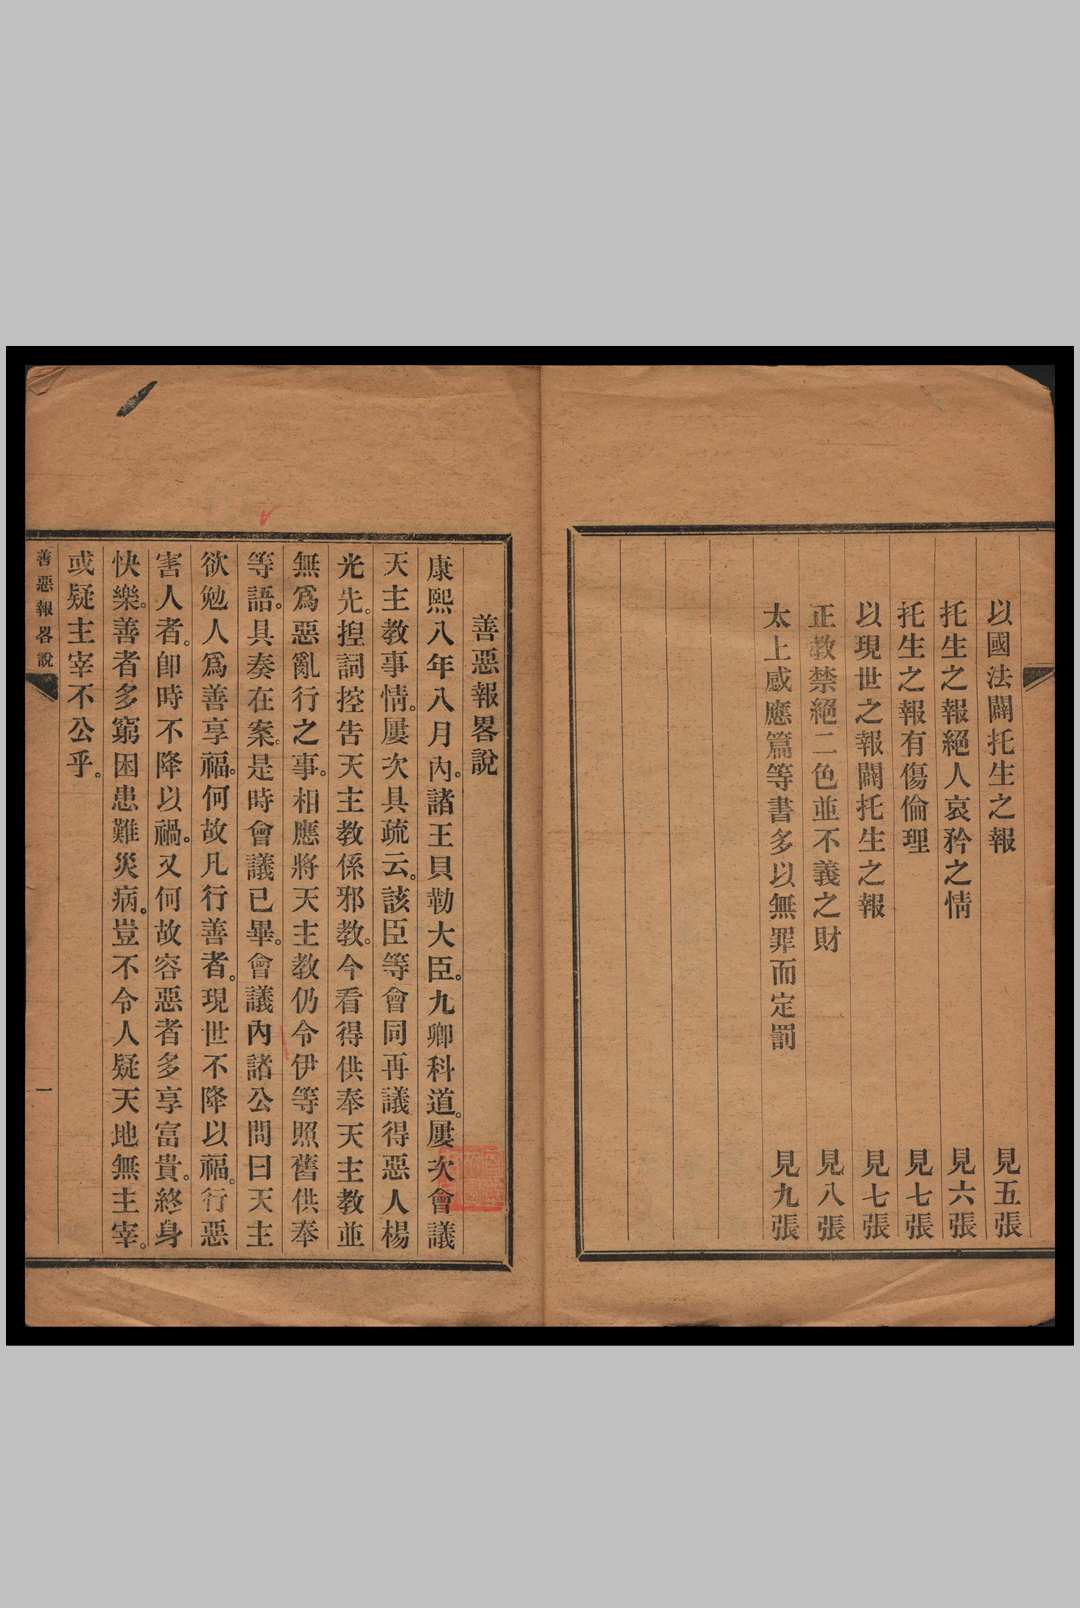 以國法闢托生之報 見五張
托生之報絕人哀矜之情 見六張
托生之報有傷倫理 見七張
以現世之報闢托生之報 見七張
正教禁絕二色並不義之財 見八張
太上感應篇等書多以無罪而定罰 見九張
善惡報畧說
康熙八年八月內。諸王貝勒大臣。九卿科道。屢次會議
天主教事情。屢次具疏云。該臣等會同再議得惡人楊
光先。揑詞控告天主教係邪教。今看得供奉天主教並
無爲惡亂行之事。相應將天主教仍令伊等照舊供奉
等語。具奏在案。是時會議已畢。會議內諸公問曰天主
欲勉人爲善享福。何故凡行善者。現世不降以福。行惡
害人者。卽時不降以禍。又何故容惡者多享富貴。終身
快樂。善者多窮困患難災病。豈不令人疑天地無主宰。
或疑主宰不公乎。
善惡報畧說 一